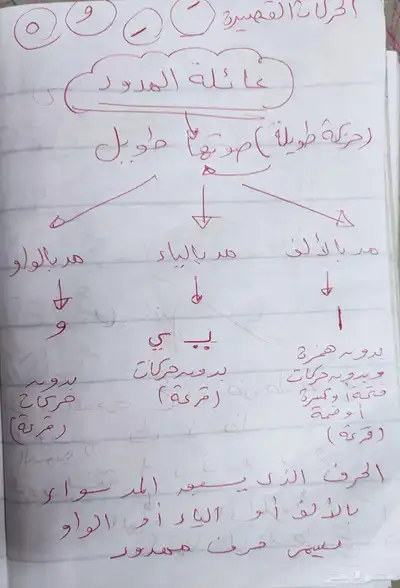 الحركات القصيرة ـَ ـُ ـِ ـْ
عائلة المدود
(حركة طويلة) صوتها طويل
مد بالألف مد بالياء مد بالواو
ا يـ ي و
بدون همزة
وبدون حركات
فتحة أو كسرة
أو ضمة
(قرعة)
بدون حركات
(قرعة)
بدون
حركات
(قرعة)
الحرف الذي يسبق المد سواء
بالألف أو الياء أو الواو
يسمى حرف ممدود